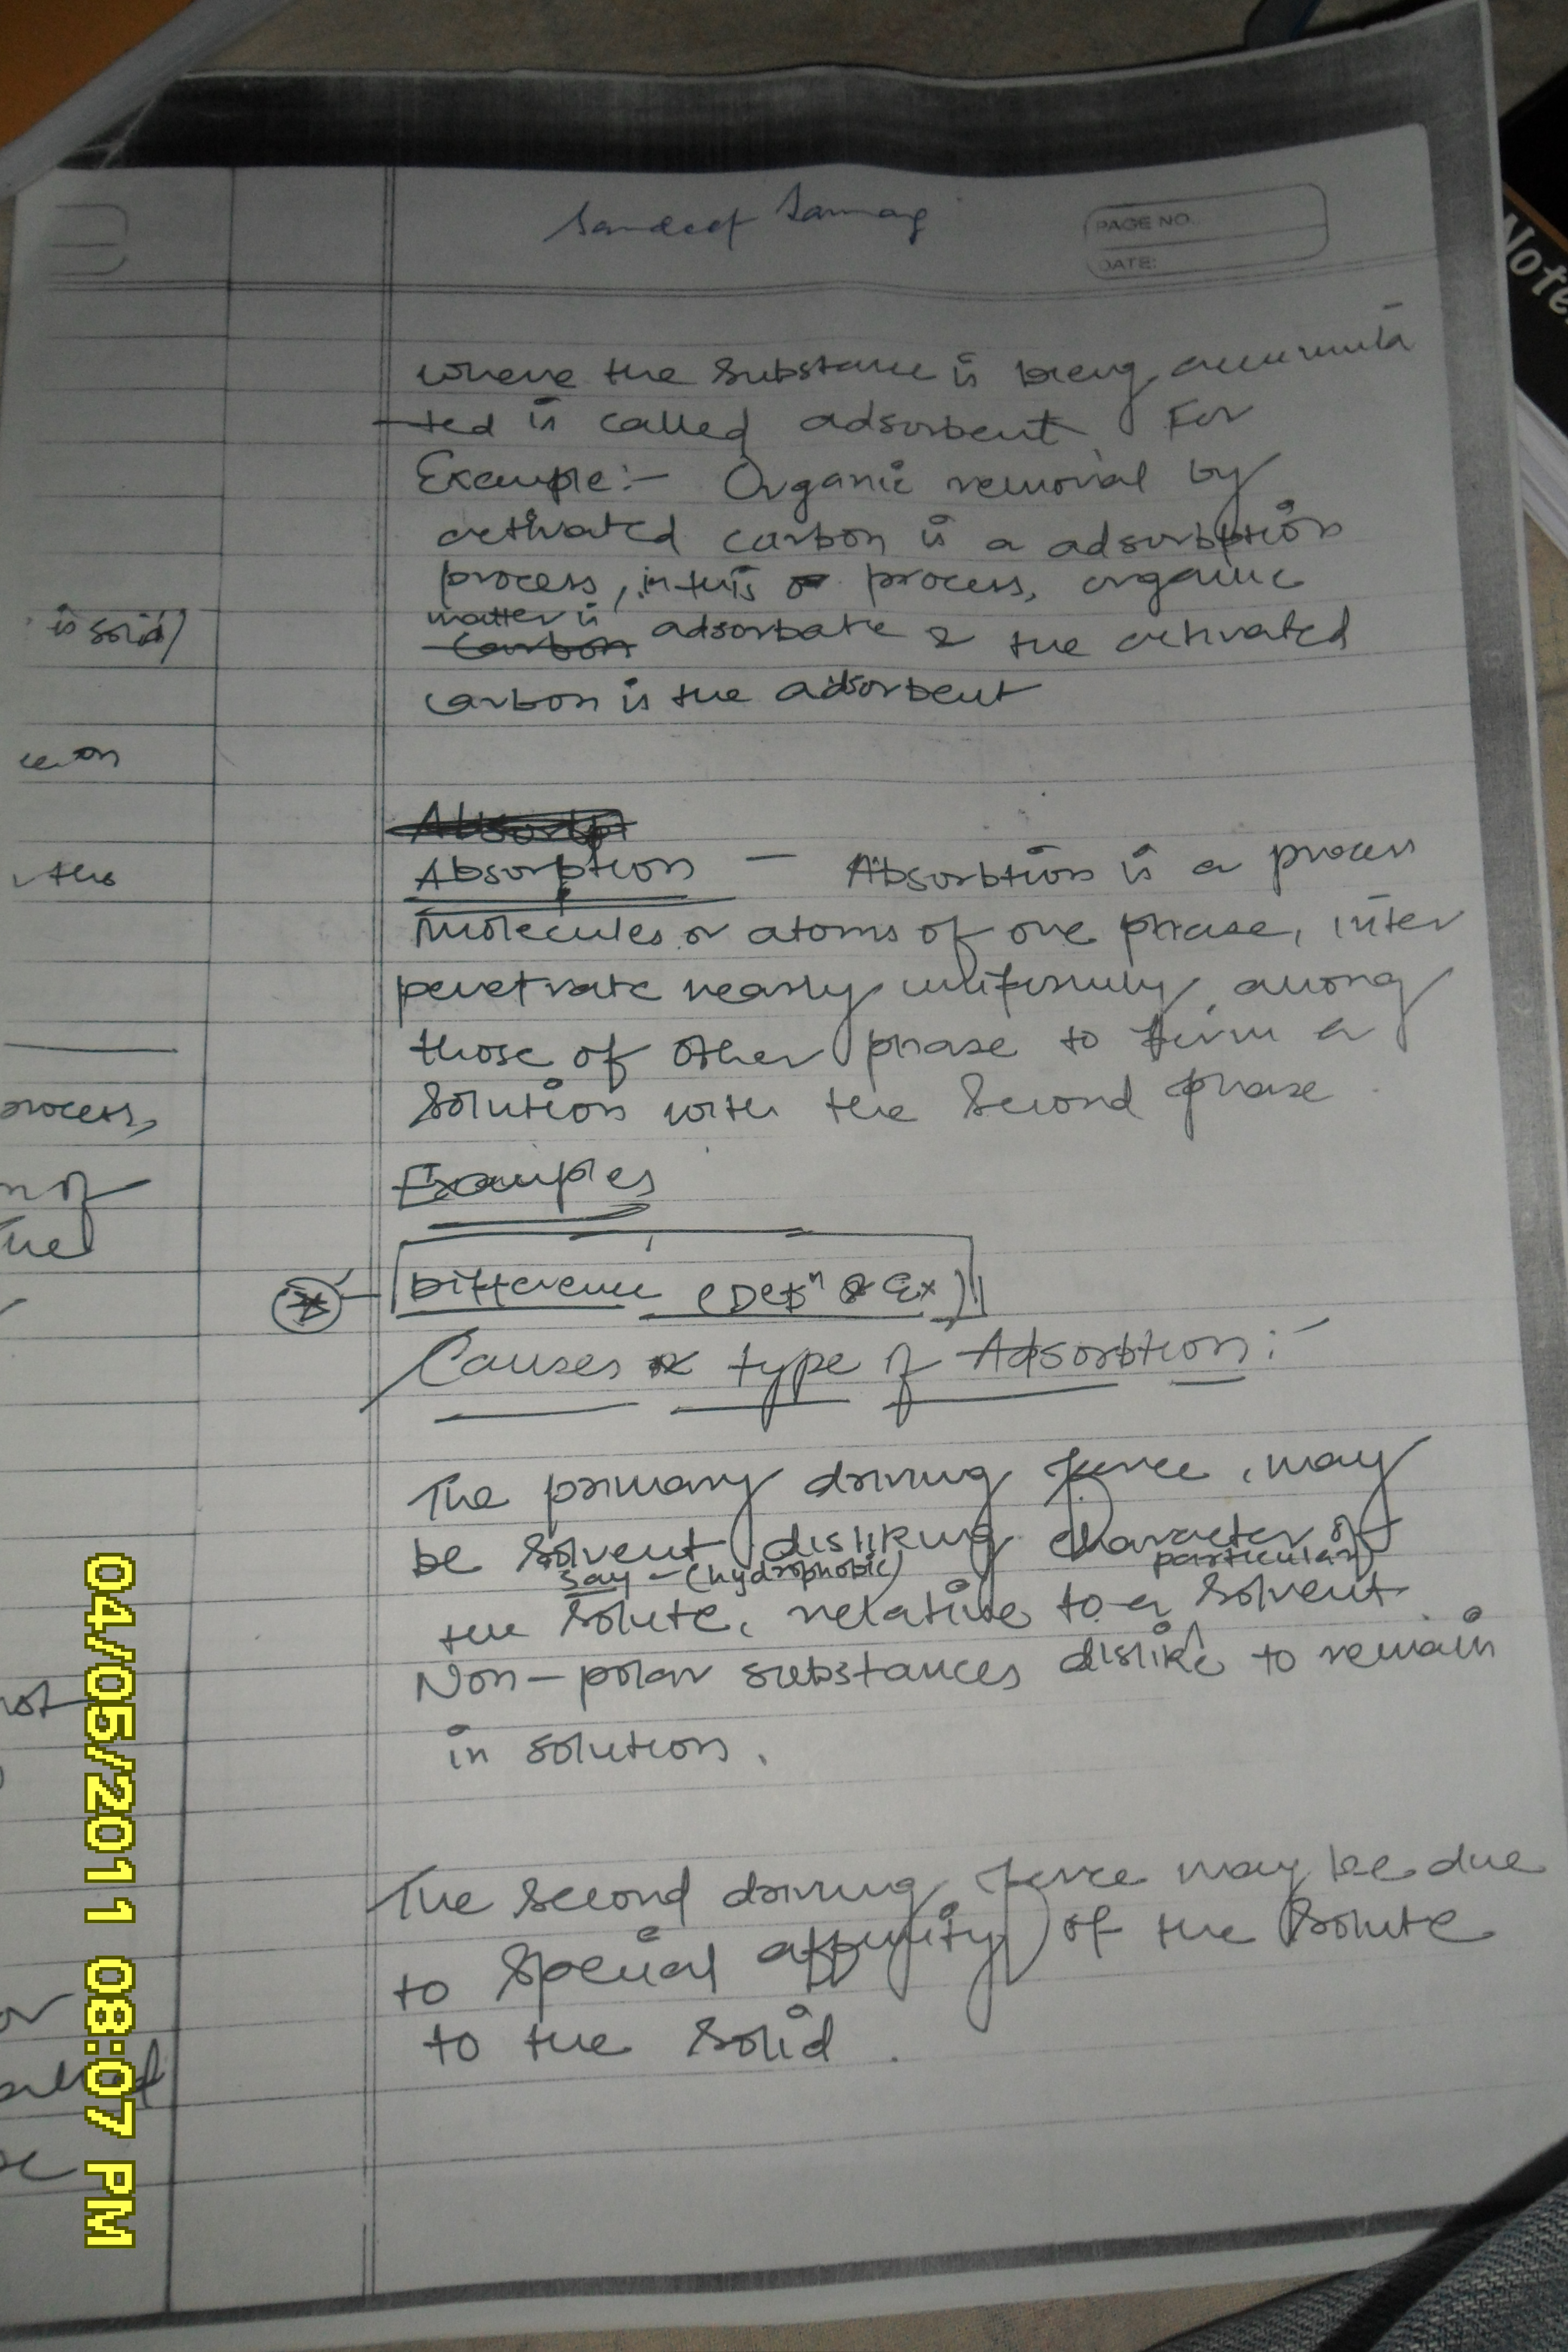 Sandeep
PAGE NO.
DATE:
Note
where the substance is being accumula
-ted is called adsorbent For
Example:- Organic removal by
activated carbon is a adsorbption
process, in this process, organic
matter is
Carbon adsorbate & the activated
carbon is the adsorbent
Absorpt
Absorption - Absorbtion is a process
molecules or atoms of one phase, inter
penetrate nearly uniformly among
those of other phase to form a
solution with the second phase
Examples
Difference (Defn & Ex)
Causes & type of Adsorbtion:-
The primary driving force, may
be solvent disliking character of
say - (hydrophobic) particular
the solute, relative to a solvent
Non-polar substances dislike to remain
in solution.
The second driving force may be due
to special affinity of the solute
to the solid.
is solid)
ce on
the
process,
n of
The
not
or
04/05/2011 08:07 PM